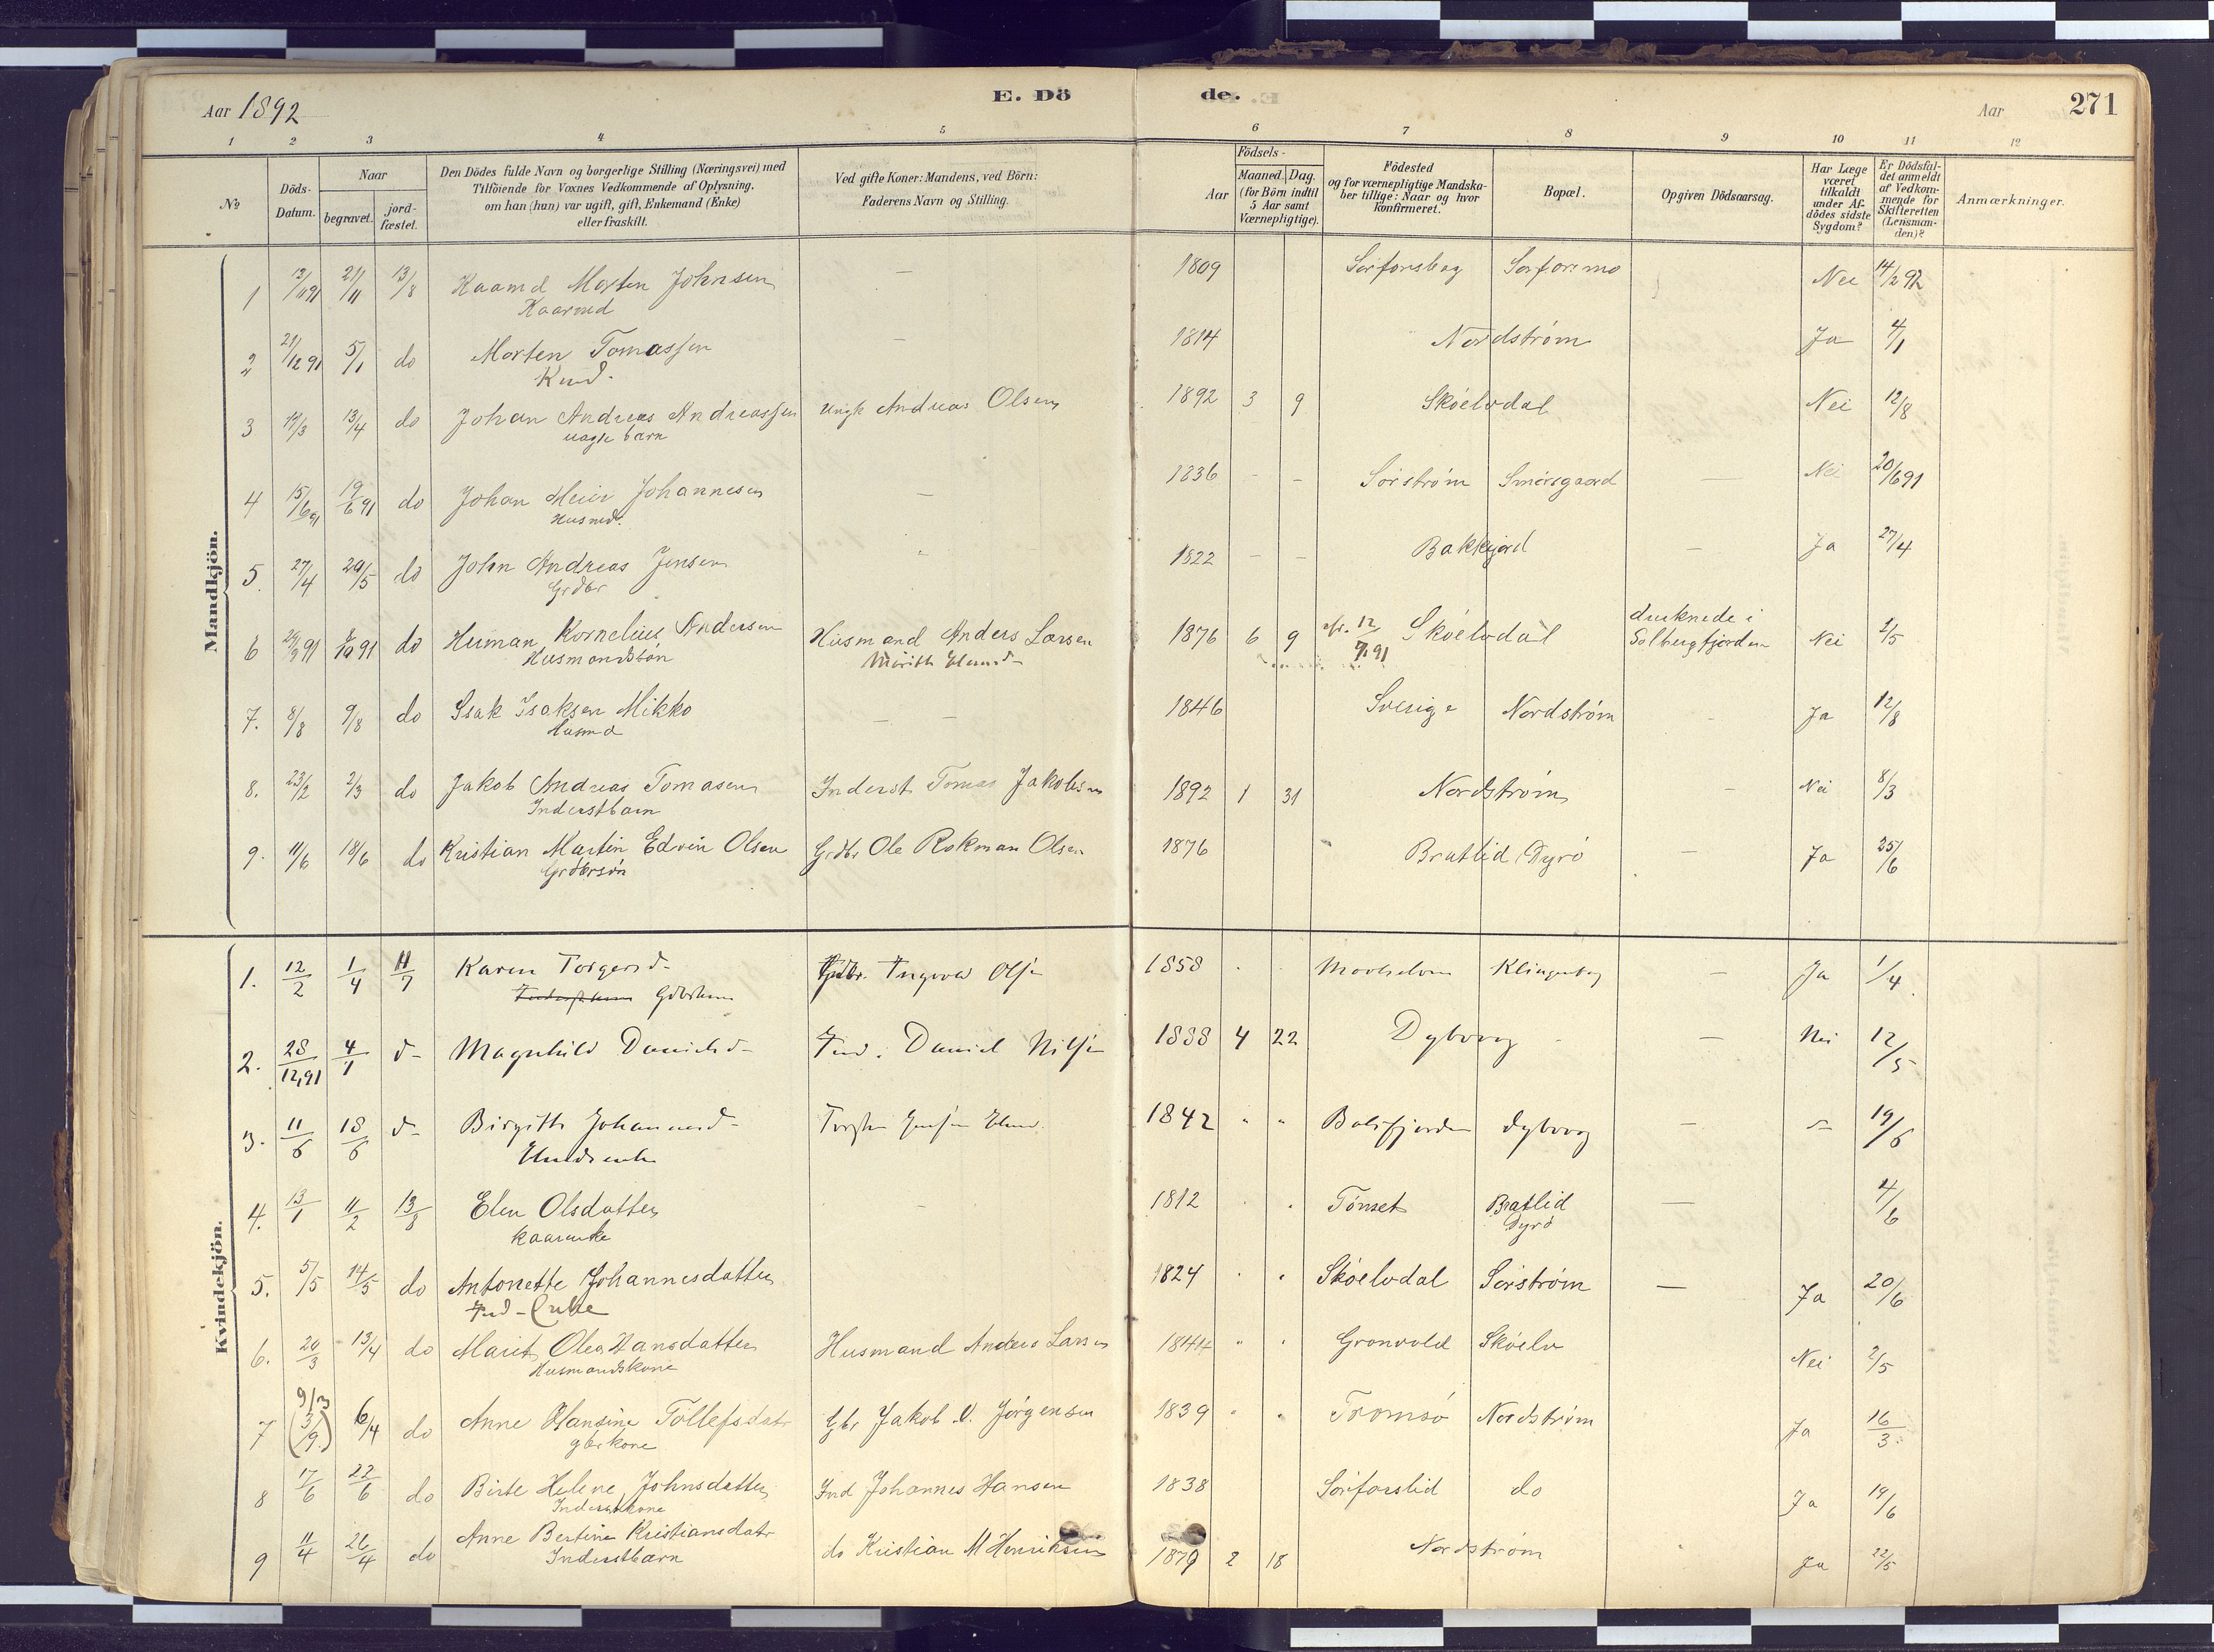 Aar 1892
E. Dö
de.
Aar
271
1 2 3 4 5 6 7 8 9 10 11 12
No
Döds-Datum.
Naar
begravet.
jord-fæstet.
Den Dödes fulde Navn og borgerlige Stilling (Næringsvei) med
Tilföiende for Voxnes Vedkommende af Oplysning,
om han (hun) var ugift, gift, Enkemand (Enke)
eller fraskilt.
Ved gifte Koner: Mandens, ved Börn:
Faderens Navn og Stilling.
Födsels-
Aar
Maaned. Dag.
(for Börn indtil
5 Aar samt
Værnepligtige).
Födested
og for værnepligtige Mandska-
ber tillige: Naar og hvor
konfirmeret.
Bopæl.
Opgiven Dödsaarsag.
Har Læge
været
tilkaldt
under Af-
dödes sidste
Sygdom?
Er Dödsfal-
det anmeldt
af Vedkom-
mende for
Skifteretten
(Lensman-
den)?
Anmærkninger.
Mandkjön.
1 21/11 13/8 Kaamd Morten Johnsen — 1809 Sørforsbeg Sørforsmo Nei 14/2 92
Kaarmd
2 21/12 91 5/1 do Morten Tomassen — 1814 Nordstrøm Ja 4/1
3 13/4 do Johan Andreas Andreassen Ungk Andreas Olsen 1892 3 9 Skøelvdal Nei 12/8
uagte barn
4 15/6 91 19/6 91 do Johan Meier Johannesen — 1836 - - Sørstrøm Smørsgaard — Nei 20/6 91
Husmd.
5. 27/4 29/5 do John Andreas Jensen 1822 - - Bakkejord — Ja 27/4
Grdbr
6 do Herman Kornelius Andersen Husmand Anders Larsen 1876 6 9 12/9 91 Skøelvdal druknede i Solbergfjorden Nei 2/5
Husmandssøn
7. 8/8 9/8 do Isak Isaksen Mikko — — 1846 Sverige Nordstrøm Ja 12/8
Husmd
8. 23/2 2/3 do Jakob Andreas Tomasen Inderst Tomas Jakobsen 1892 1 31 Nordstrøm Nei 8/3
Inderstbarn
9. 11/6 18/6 do Kristian Martin Edvin Olsen Grdbr Ole Rokman Olsen 1876 Bratlid Dyrø — Ja 25/6
Grdbrsøn
Kvindekjön.
1. 12/2 1/4 11/7 Karen Torgersd- Gdbr. Ingvald Olsen 1858 Klingenberg — Ja 1/4
2. 28/12,91 4/1 d- Magnhild Danielsd- Ind. Daniel Nilsen 1888 4 22 Dyborg — Nei 12/5
3. 11/6 18/6 d- Birgitte Johannesd- 1842 Balsfjorden Dyborg — 19/6
4. 13/1 11/2 13/8 Elen Olsdatter — 1812 Tønset Bratlid Dyrø — 4/6
Kaarenke
5. 5/5 14/5 do Antonette Johannesdatter 1824 Skøelvdal Sørstrøm — Ja 20/6
Ind- Enke
6. 20/3 13/4 do Marit Olea Hansdatter Husmand Anders Larsen 1844 Grønvold Skøelv Nei 2/5
Husmandskone
7 9/3 (3/9.) 6/4 do Anne Hansine Tollefsdatr Gbr Jakob N. Jørgensen 1839 Tromsø Nordstrøm Ja 16/3.
gbrkone
8 17/6 22/6 do Birte Helene Johnsdatter Ind Johannes Hansen 1838 Sørforslid do Ja 19/6
Inderstkone
9 11/4 26/4 do Anne Bertine Kristiansdatr do Kristian M Henriksen 1879 2 18 Nordstrøm Ja 22/5
Inderstbarn